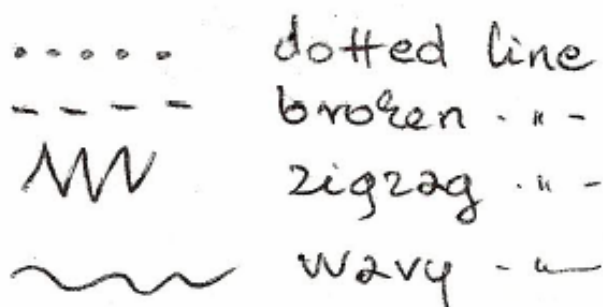 dotted line
broken - " -
zigzag - " -
wavy - " -